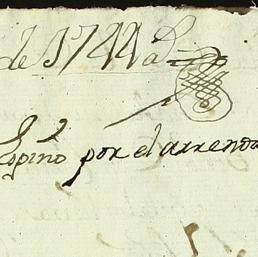 de 1744 a
Espino por el arrenda